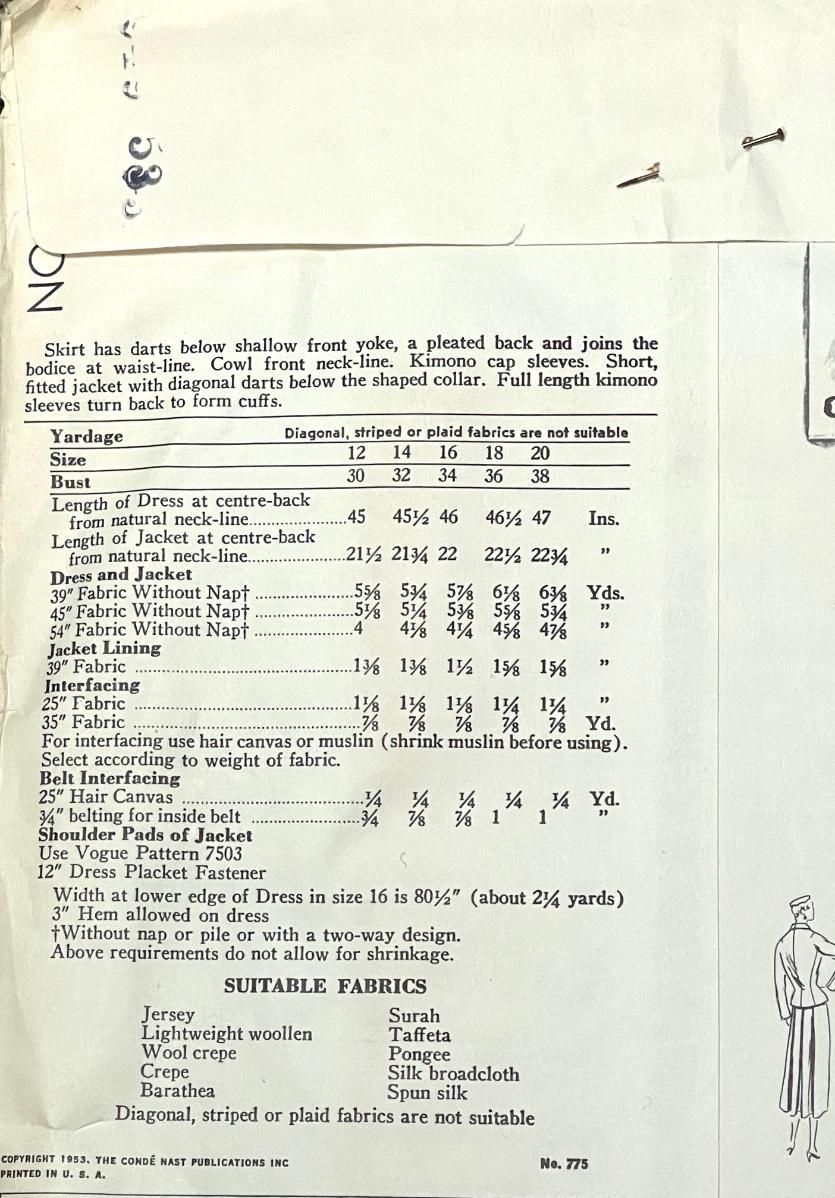 ON
Skirt has darts below shallow front yoke, a pleated back and joins the
bodice at waist-line. Cowl front neck-line. Kimono cap sleeves. Short,
fitted jacket with diagonal darts below the shaped collar. Full length kimono
sleeves turn back to form cuffs.
Yardage Diagonal, striped or plaid fabrics are not suitable
Size 12 14 16 18 20
Bust 30 32 34 36 38
Length of Dress at centre-back
from natural neck-line......................45 45½ 46 46½ 47 Ins.
Length of Jacket at centre-back
from natural neck-line......................21½ 21¾ 22 22½ 22¾ ”
Dress and Jacket
39″ Fabric Without Nap† ......................5⅝ 5¾ 5⅞ 6⅛ 6⅜ Yds.
45″ Fabric Without Nap† ......................5⅛ 5¼ 5⅜ 5⅝ 5¾ ”
54″ Fabric Without Nap† ......................4 4⅛ 4¼ 4⅝ 4⅞ ”
Jacket Lining
39″ Fabric ......................1⅜ 1⅜ 1½ 1⅝ 1⅝ ”
Interfacing
25″ Fabric ......................1⅛ 1⅛ 1⅛ 1¼ 1¼ ”
35″ Fabric ......................⅞ ⅞ ⅞ ⅞ ⅞ Yd.
For interfacing use hair canvas or muslin (shrink muslin before using).
Select according to weight of fabric.
Belt Interfacing
25″ Hair Canvas ......................¼ ¼ ¼ ¼ ¼ Yd.
¾″ belting for inside belt ......................¾ ⅞ ⅞ 1 1 ”
Shoulder Pads of Jacket
Use Vogue Pattern 7503
12″ Dress Placket Fastener
Width at lower edge of Dress in size 16 is 80½″ (about 2¼ yards)
3″ Hem allowed on dress
†Without nap or pile or with a two-way design.
Above requirements do not allow for shrinkage.
SUITABLE FABRICS
Jersey Surah
Lightweight woollen Taffeta
Wool crepe Pongee
Crepe Silk broadcloth
Barathea Spun silk
Diagonal, striped or plaid fabrics are not suitable
COPYRIGHT 1953. THE CONDÉ NAST PUBLICATIONS INC No. 775
PRINTED IN U. S. A.